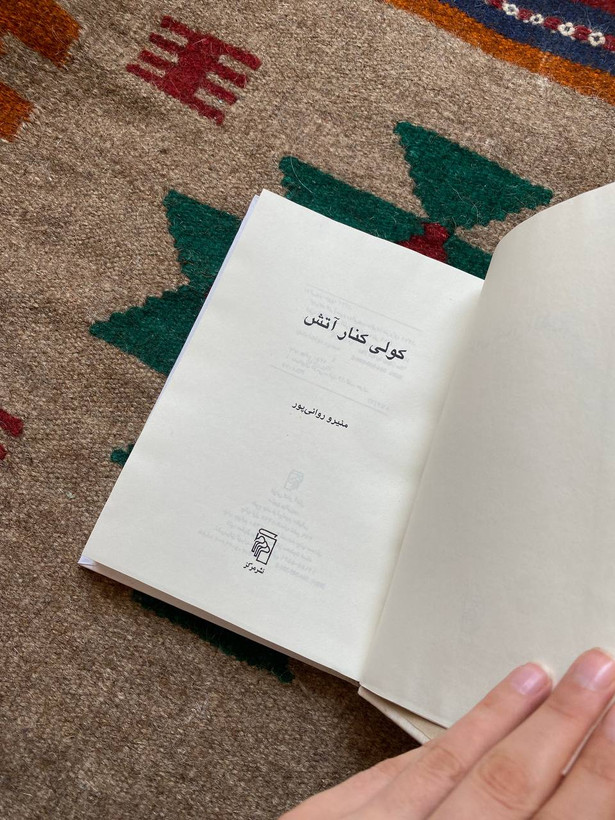 کولی کنار آتش
منیرو روانی‌پور
نشرمرکز